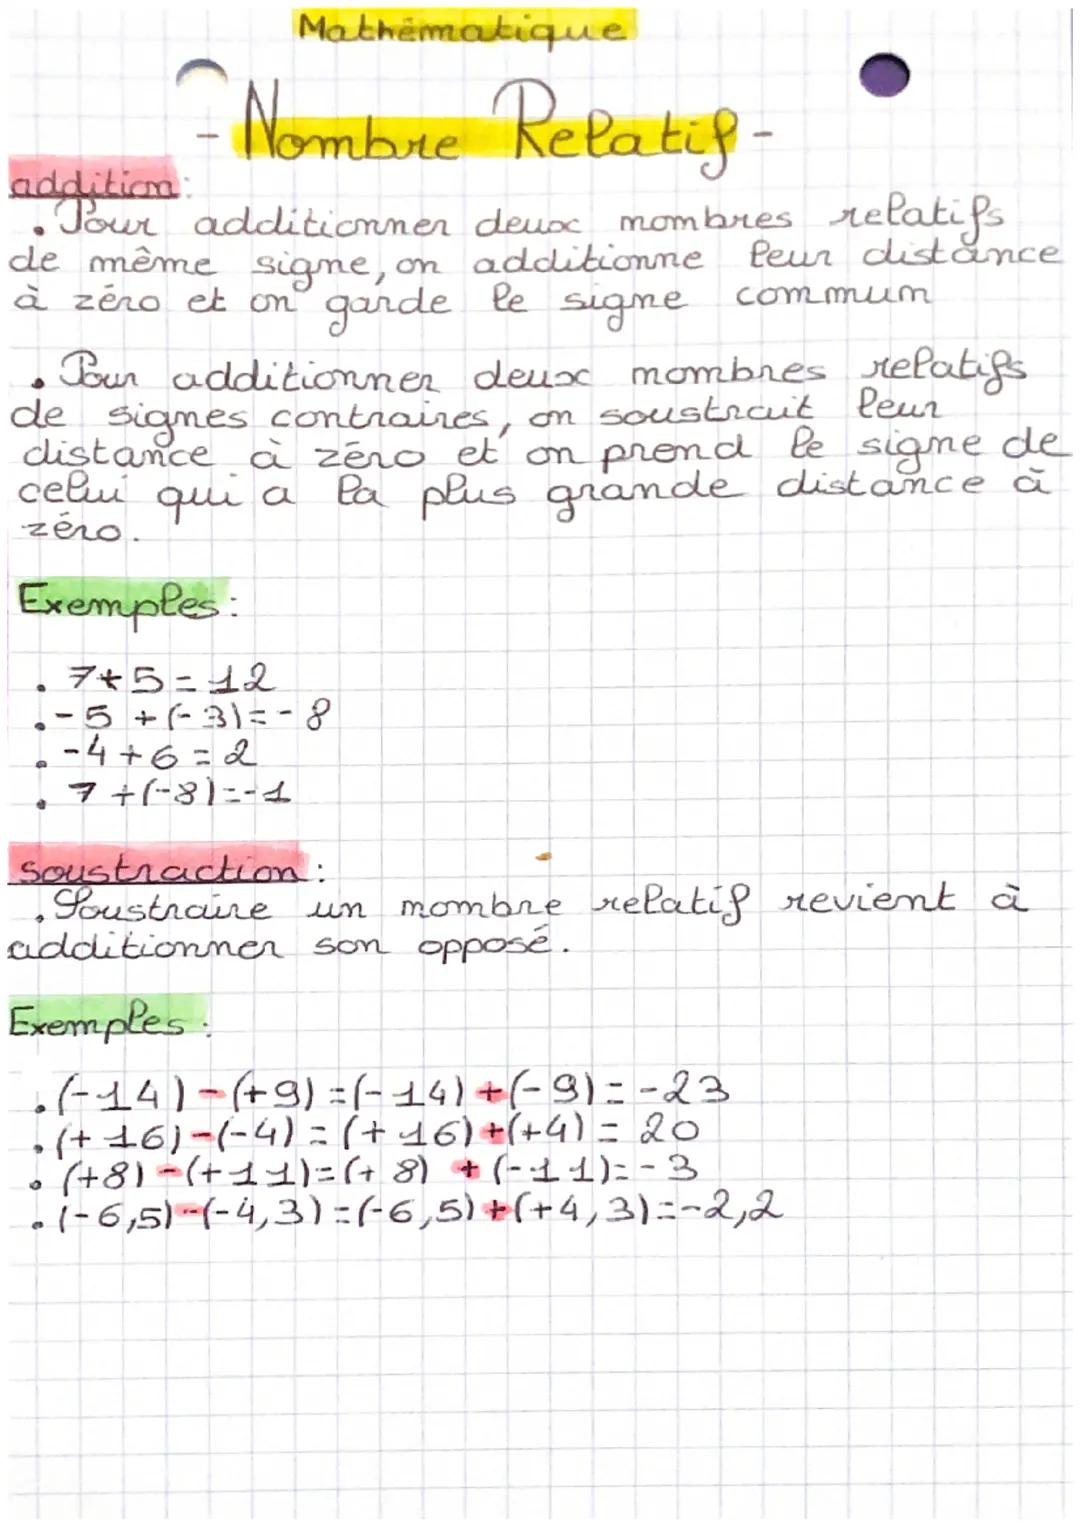 Mathématique
- Nombre Relatif -
addition:
. Pour additionner deux nombres relatifs
de même signe, on additionne leur distance
à zéro et on garde le signe commun
. Pour additionner deux nombres relatifs
de signes contraires, on soustrait leur
distance à zéro et on prend le signe de
celui qui a la plus grande distance à
zéro.
Exemples:
. 7+5=12
. -5 + (-3)=-8
. -4+6=2
. 7+(-8)=-1
soustraction:
. Soustraire un nombre relatif revient à
additionner son opposé.
Exemples:
. (-14)-(+9)=(-14)+(-9)=-23
. (+16)-(-4)=(+16)+(+4)=20
. (+8)-(+11)=(+8)+(-11)=-3
. (-6,5)-(-4,3)=(-6,5)+(+4,3)=-2,2